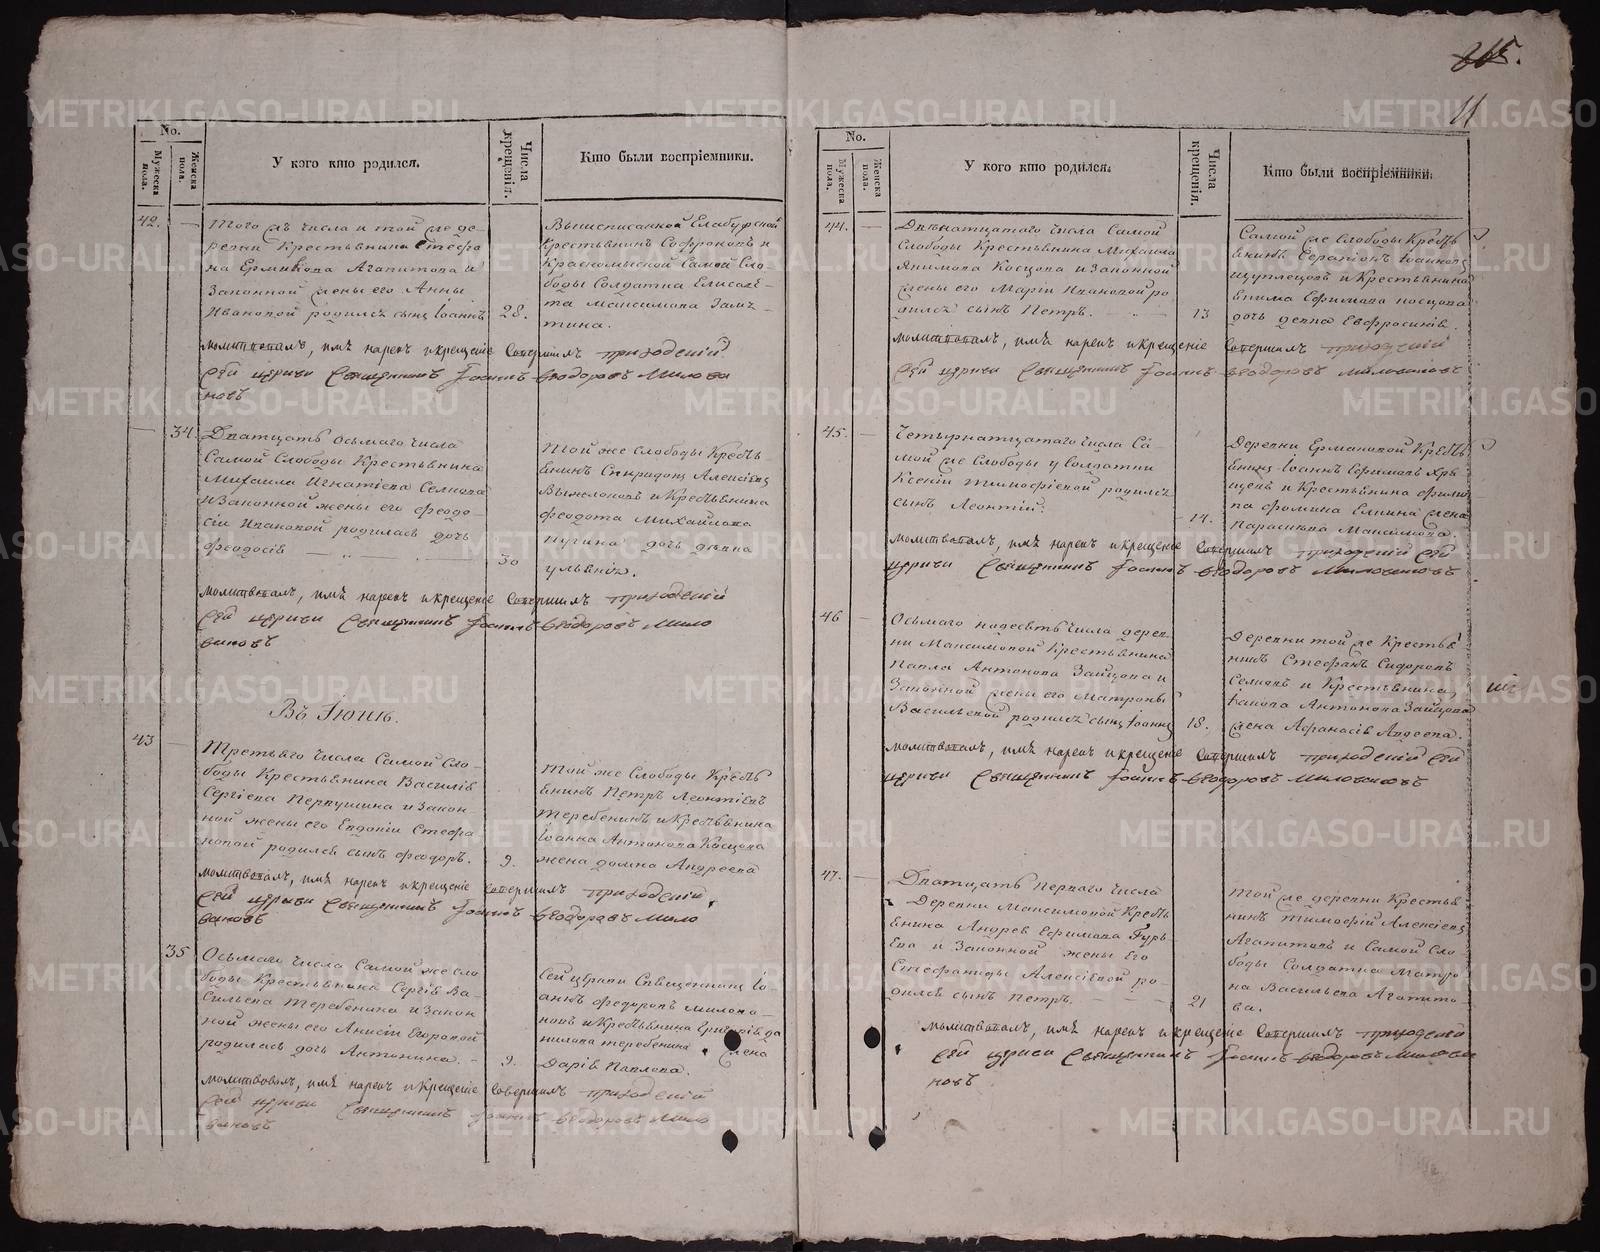 215.
11
No.
Мужеска пола.
Женска пола.
У кого кто родился.
Числа крещенія.
Кто были воспріемники.
42.
Того жъ числа и той же де-
ревни Крестьянина Стефа
на Ермикова Агапитова и
Законной жены его Анны
Ивановой родился сынъ Іоаннъ
28.
Вышеписанной
Крестьянинъ Софроновъ и
Красномыской Самой Сло
боды Солдатка Елисаве-
та Максимова
молитвовалъ, имя нарекъ и крещеніе совершилъ приходскій
сей церкви Священникъ Іоаннъ Ѳеодоровъ Милова
новъ
34.
Двадцать Осьмаго числа
Самой Слободы Крестьянина
Михаила Игнатіева
и Законной жены его Ѳеодо-
сіи Ивановой родилась дочь
Ѳеодосія
30
Той же Слободы Кресть-
янинъ Спиридонъ Алексіевъ
и Крестьянина
Ѳеодота Михайлова
дочь девка
Ульянія.
молитвовалъ, имя нарекъ и крещеніе совершилъ приходскій
сей церкви Священникъ Іоаннъ Ѳеодоровъ Мило
вановъ
Въ Іюнѣ.
43
Третьяго числа Самой Сло-
боды Крестьянина Василія
Сергіева Первушина и Закон
ной жены его Евдокіи Стефа
новой родился сынъ Ѳеодоръ.
9.
Той же Слободы Кресть
янинъ Петръ Леонтіевъ
Теребенинъ и Крестьянина
Іоанна Антонова Косцова
жена Домна Андреева
молитвовалъ, имя нарекъ и крещеніе совершилъ приходскій
сей церкви Священникъ Іоаннъ Ѳеодоровъ Мило
вановъ
35
Осьмаго числа Самой же сло
боды Крестьянина Сергія Ва-
сильева Теребенина и Закон
ной жены его Анисіи Егоровой
родилась дочь Антонина.
9.
Сей церкви Священникъ Іо-
аннъ Ѳедоровъ Милова-
новъ и Крестьянина Григорія Да
нилова Теребенина жена
Дарія Павлова.
молитвовалъ, имя нарекъ и крещеніе совершилъ приходскій
сей церкви Священникъ Іоаннъ Ѳеодоровъ Мило
вановъ
No.
Мужеска пола.
Женска пола.
У кого кто родился.
Числа крещенія.
Кто были воспріемники.
44.
Двѣнатцатаго числа Самой
Слободы Крестьянина Михаила
Якимова Косцова и Законной
жены его Маріи Ивановой ро
дился сынъ Петръ.
13
Самой же Слободы Кресть
янинъ Серапіонъ Іоанновъ
Щуплецовъ и Крестьянина
Якима Ефимова Косцова
дочь девка Евфросинія.
молитвовалъ, имя нарекъ и крещеніе совершилъ приходскій
сей церкви Священникъ Іоаннъ Ѳеодоровъ Миловановъ
45.
Четырнатцатаго числа Са-
мой же Слободы у Солдатки
Ксеніи Тимофіевой родился
сынъ Леонтій.
14.
Деревни Ермаковой Кресть
янинъ Іоаннъ Ефимовъ
и Крестьянина Филип
па Фомина жена
Параскева Максимова.
молитвовалъ, имя нарекъ и крещеніе совершилъ приходскій сей
церкви Священникъ Іоаннъ Ѳеодоровъ Миловановъ
46
Осьмаго надесять числа дерев
ни Максимовой Крестьянина
Павла Антонова Зайцова и
Законной жены его Матроны
Васильевой родился сынъ Іоаннъ
18.
Деревни той же Крестья
нинъ Стефанъ Сидоровъ
и Крестьянина
Антонова Зайцова
жена Афанасія Авдеева.
молитвовалъ, имя нарекъ и крещеніе совершилъ приходскій сей
церкви Священникъ Іоаннъ Ѳеодоровъ Миловановъ
47.
Дватцать Перваго числа
Деревни Максимовой Кресть
янина Андрея Ефимова Гурь
ева и Законной жены Его
Стефаниды Алексіевой ро-
дился сынъ Петръ.
21
Той же деревни Крестья
нинъ Тимофій Алексіевъ
Агапитовъ и Самой Сло
боды Солдатка Матро
на Васильева Агапито-
ва.
молитвовалъ, имя нарекъ и крещеніе совершилъ приходскій
сей церкви Священникъ Іоаннъ Ѳеодоровъ Милова
новъ
METRIKI.GASO-URAL.RU